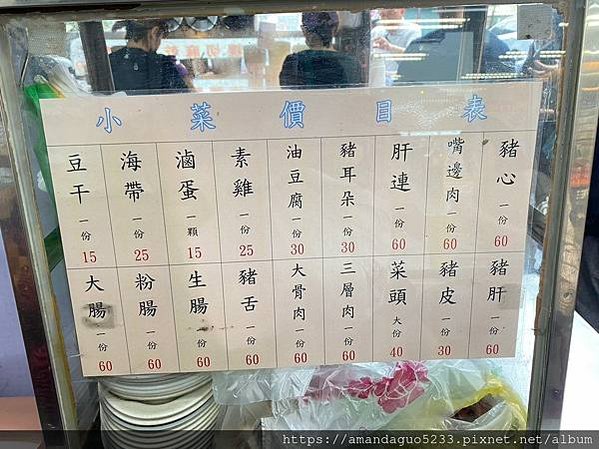 小菜價目表
豆干 一份 15
海帶 一份 25
滷蛋 一顆 15
素雞 一份 25
油豆腐 一份 30
豬耳朵 一份 30
肝連 一份 60
嘴邊肉 一份 60
豬心 一份 60
大腸 一份 60
粉腸 一份 60
生腸 一份 60
豬舌 一份 60
大骨肉 一份 60
三層肉 一份 60
菜頭 大份 40
豬皮 一份 30
豬肝 一份 60
https://amandaguo5233.pixnet.net/album